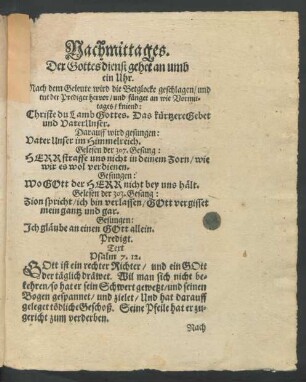 Nachmittages.
Der Gottesdienst gehet an umb
ein Uhr.
Nach dem Geleute wird die Betglocke geschlagen/und
tut der Prediger hervor/ und fänget an wie Vormit-
tages/ kniend:
Christe du Lamb Gottes. Das kürtzere Gebet
und Vater Unser.
Darauff wird gesungen:
Vater Unser im Himmelreich.
Gelesen der 307. Gesang:
HERR straffe uns nicht in deinem Zorn/ wie
wir es wol verdienen.
Gesungen:
Wo GOtt der HERR nicht bey uns hält.
Gelesen der 303. Gesang:
Zion spricht/ ich bin verlassen/ GOtt vergisset
mein gantz und gar.
Gesungen:
Ich gläube an einen GOtt allein.
Predigt.
Text
Psalm 7. 12.
GOtt ist ein rechter Richter/ und ein GOtt
der täglich dräwet. Wil man sich nicht be-
kehren/ so hat er sein Schwert gewetzt/ und seinen
Bogen gespannet/ und zielet/ Und hat darauff
geleget tödliche Geschoß. Seine Pfeile hat er zu-
gericht zum verderben.
Nach